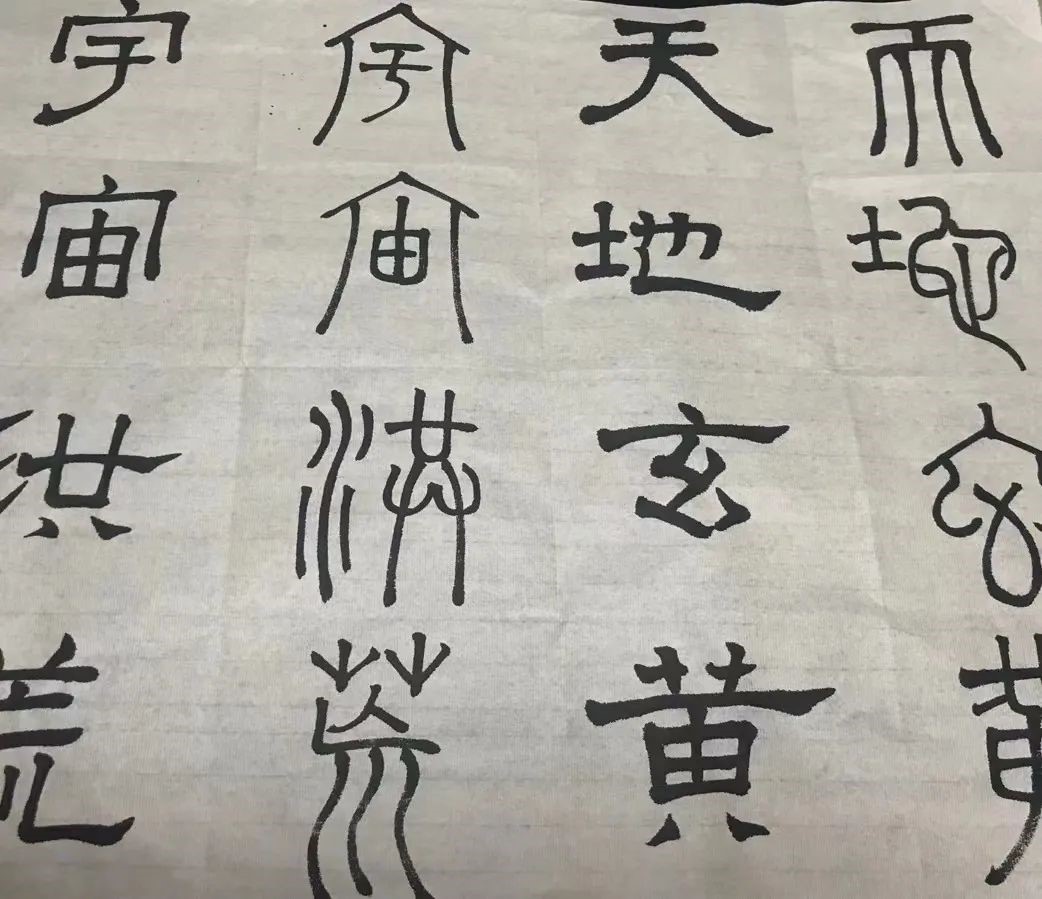 天地玄黄
天地玄黄
宇宙洪荒
宇宙洪荒